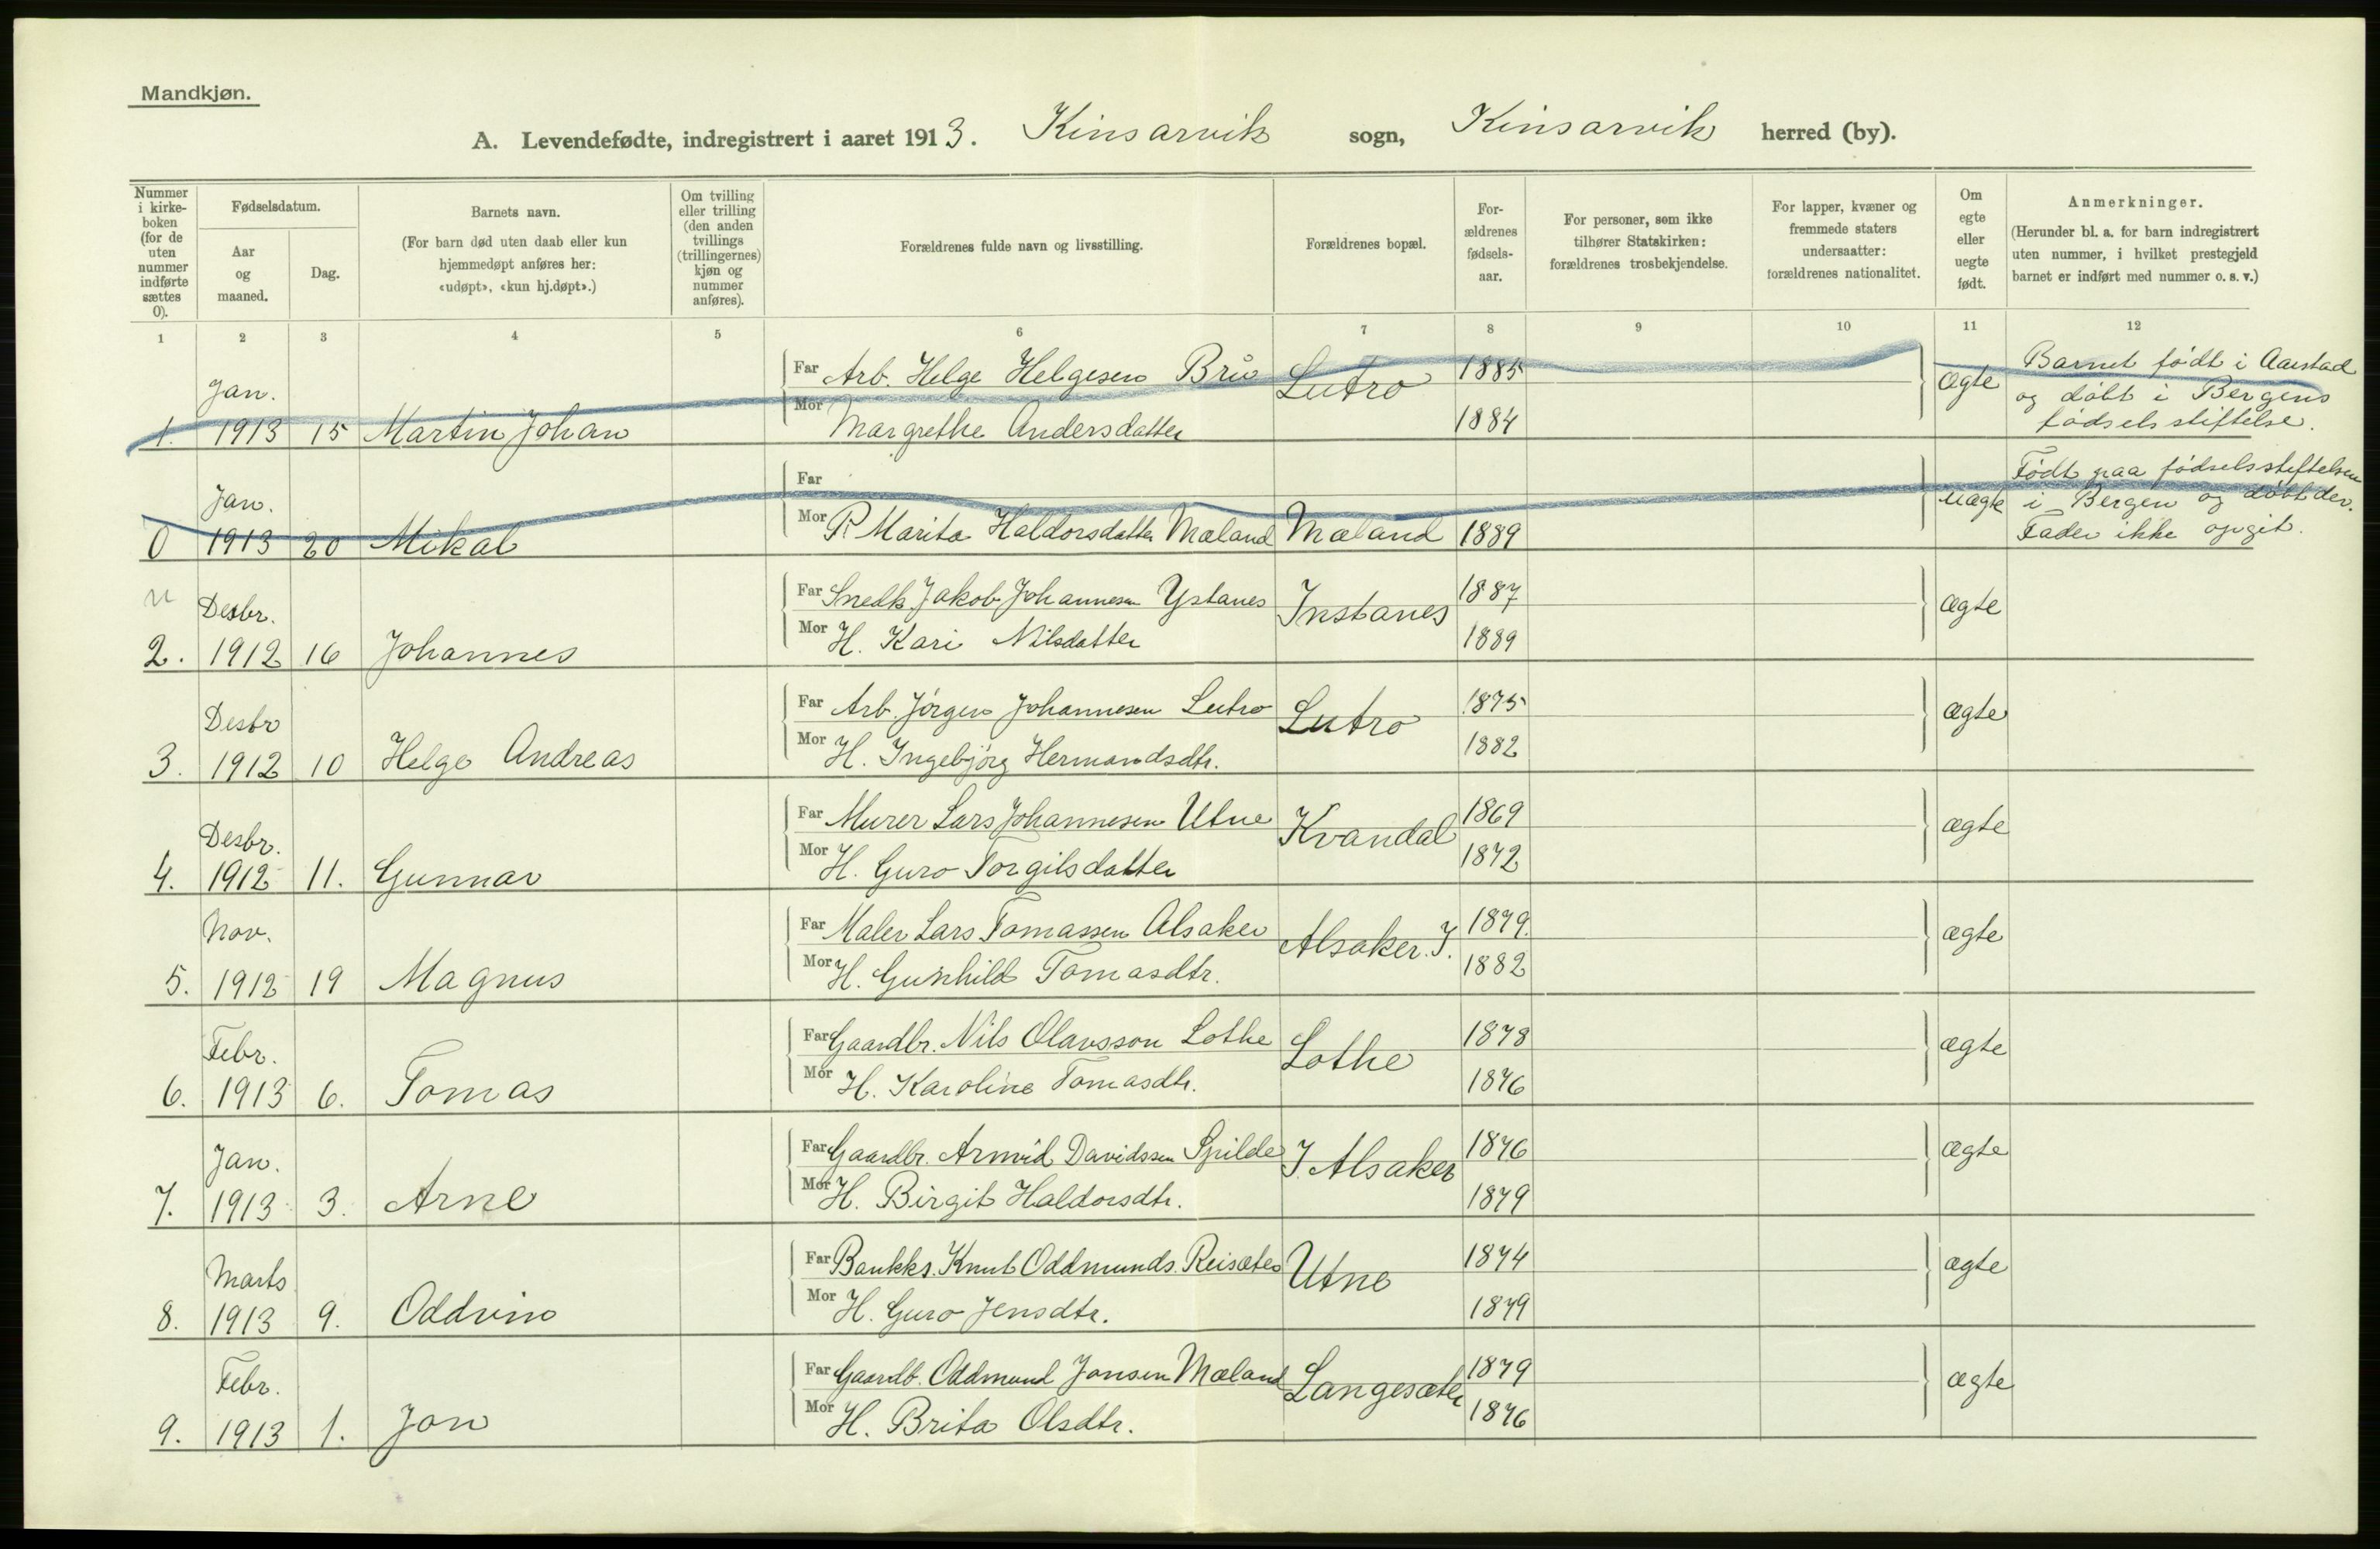 Mandkjøn.
A. Levendefødte, indregistrert i aaret 1913. Kinsarvik sogn, Kinsarvik herred (by).
Nummer i kirke- boken (for de uten nummer indførte sættes 0).
Fødselsdatum.
Aar og maaned.
Dag.
Barnets navn.
(For barn død uten daab eller kun hjemmedøpt anføres her: «udøpt», «kun hj.døpt».)
Om tvilling eller trilling (den anden tvillings (trillingernes) kjøn og nummer anføres).
Forældrenes fulde navn og livsstilling.
Forældrenes bopæl.
For- ældrenes fødsels- aar.
For personer, som ikke tilhører Statskirken: forældrenes trosbekjendelse.
For lapper, kvæner og fremmede staters undersaatter: forældrenes nationalitet.
Om egte eller uegte født.
Anmerkninger.
(Herunder bl. a. for barn indregistrert uten nummer, i hvilket prestegjeld barnet er indført med nummer o. s. v.)
1 2 3 4 5 6 7 8 9 10 11 12
Far Arb. Helge Helgesen Brú Lutro 1885 ægte Barnet født i Aarstad
Jan.
Mor Margrethe Andersdatter 1884 og döbt i Bergens
1. 1913 15 Martin Johan fødselsstiftelse.
Far Födt paa fødselsstiftelsen
Jan. uægte i Bergen og døbt der.
0 1913 20 Mikal Mor P. Marita Haldorsdatter Mæland Mæland 1889 Fader ikke opgit.
Desbr. Far Snedk. Jakob Johannesen Ystanes Instanes 1887 ægte
Mor H. Kari Nilsdatter 1889
2. 1912 16 Johannes
Desbr Far Arb. Jörgen Johannesen Lutro Lutro 1875 ægte
3. 1912 10 Helge Andreas Mor H. Ingebjörg Hermandsdtr. 1882
Desbr. Far Murer Lars Johannesen Utne Kvandal 1869 ægte
4. 1912 11. Gunnar Mor H. Guro Torgilsdatter 1872
Nov. Far Maler Lars Tomassen Alsaker Alsaker. I. 1879. ægte
5. 1912 19 Magnus Mor H. Gunhild Tomasdtr. 1882
Febr. Far Gaardbr. Nils Olavsson Lothe Lothe 1878 ægte
6. 1913 6. Tomas Mor H. Karoline Tomasdtr. 1876
Jan. Far Gaardbr. Arnvid Davidssen Spilde I. Alsaker 1876 ægte
7. 1913 3. Arne Mor H. Birgit Haldorsdtr. 1879
Marts Far Bankks. Knut Oddmunds. Reisæter Utne 1874 ægte
8. 1913 9. Oddvin Mor H. Guro Jensdtr. 1879
Febr. Far Gaardb. Oddmund Jonsen Mæland Langesæter 1879 ægte
9. 1913 1. Jon Mor H. Brita Olsdtr. 1876